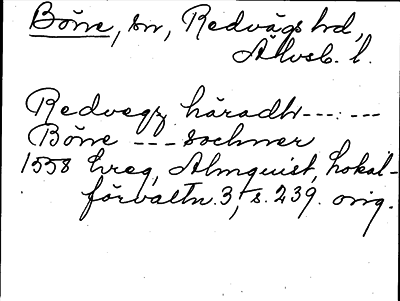 Böne, sn, Redvägs hd,
Älvsb. l.
Redvegz häradh------
Böne --- sochner
1558 hreg, Almquist, Lokal-
förvaltn. 3, s. 239. orig.